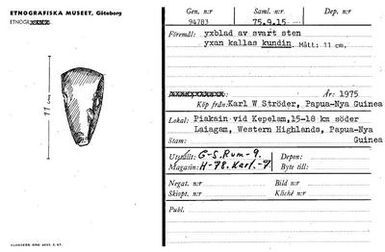 ETNOGRAFISKA MUSEET, Göteborg
ETNOGR
11 cm
Gen. n:r
94783
Saml. n:r
75.9.15
Dep. n:r
Föremål: yxblad av svart sten
yxan kallas kundin. Mått: 11 cm.
År: 1975
Köp från: Karl W Ströder, Papua-Nya Guinea
Lokal: Piakain vid Kepelam, 15-18 km söder
Laiagam, Western Highlands, Papua-Nya
Stam: Guinea
Utställt: G-S. Rum-9.
Depon:
Magasin: H-78. Karl.-7
Byte till:
Negat. n:r
Bild n:r
Skiopt. n:r
Kliché n:r
Publ.